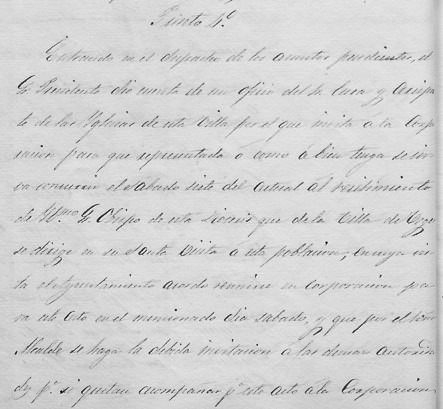 Punto 4º
Entrando en el despacho de los asuntos pendientes, el
Sr. Presidente dio cuenta de un oficio del Sr. Cura y Arcipres
te de las Iglesias de esta Villa por el que invita a la Corpo
racion para que representada ó como á bien tenga se sir
va concurrir el sabado siete del actual al recibimiento
de Yltmo. Sr. Obispo de esta Diocesis que de la Villa de
se dirige en su Santa Visita á esta poblacion, en cuya vis
ta el Ayuntamiento acordo reunirse en corporacion pa
ra este acto en el mencionado dia sabado, y que por el Señor
Alcalde se haga la debida invitacion á las demas Autorida
des pª. si gustan acompañar pª este acto á la Corporacion,